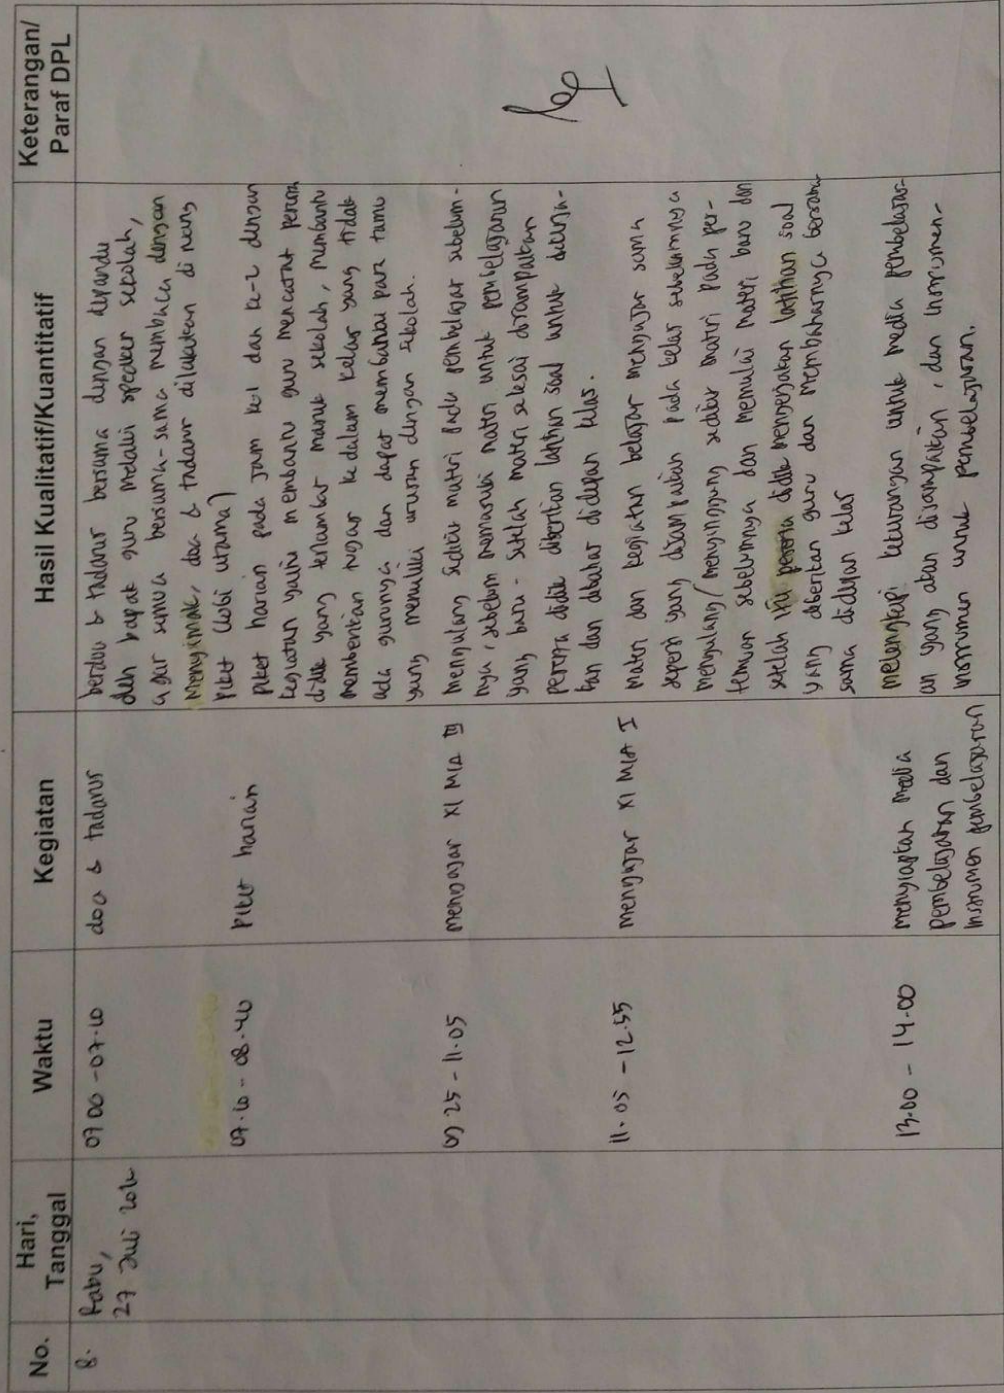 No.
Hari,
Tanggal
Waktu
Kegiatan
Hasil Kualitatif/Kuantitatif
Keterangan/
Paraf DPL
8.
Rabu,
27 Juli
07 00 - 07.10
doa & tadarus
berdoa & tadarus bersama dengan dipandu
oleh bapak guru melalui speaker sekolah,
agar semua bersama-sama membaca dengan
menyimak, doa & tadarus dilakukan di ruang
piket (lobi utama)
07.10 - 08.40
piket harian
piket harian pada jam ke1 dan ke-2 dengan
kegiatan yaitu membantu guru mencatat peserta
didik yang terlambat masuk sekolah, membantu
memberikan tugas kedalam kelas yang tidak
ada gurunya dan dapat membantu para tamu
yang memiliki urusan dengan sekolah.
09 25 - 11.05
mengajar XI MIA III
mengulang sedikit materi pada pembelajar sebelum-
nya, sebelum memasuki materi untuk pembelajaran
yang baru. setelah materi selesai disampaikan
peserta didik diberikan latihan soal untuk dikerja-
kan dan dibahas didepan kelas.
11.05 - 12.55
mengajar XI MIA I
materi dan kegiatan belajar mengajar sama
seperti yang disampaikan pada kelas sebelumnya
mengulang/menyinggung sedikit materi pada per-
temuan sebelumnya dan memulai materi baru dan
setelah itu peserta didik mengerjakan latihan soal
yang diberikan guru dan membahasnya bersama
sama didepan kelas
13.00 - 14.00
menyiapkan media
pembelajaran dan
instrumen pembelajaran
melengkapi kekurangan untuk media pembelajar-
an yang akan disampaikan, dan instrumen-
instrumen untuk pembelajaran.